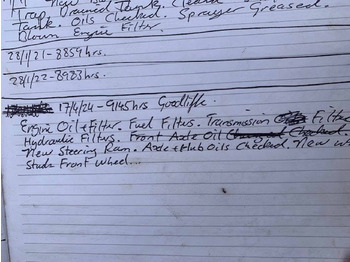 New
Trap Drained. Tank Cleaned
Tank. Oils Checked. Sprayer Greased.
Blown Engine Filter.
28/1/21-8859hrs.
28/1/22-8983hrs.
17/4/24-9145hrs Goodliffe.
Engine Oil+Filter. Fuel Filters. Transmission Filter
Hydraulic Filters. Front Axle Oil Changed Checked.
New Steering Ram. Axle+Hub Oils Checked. New
Studs Front Wheel.